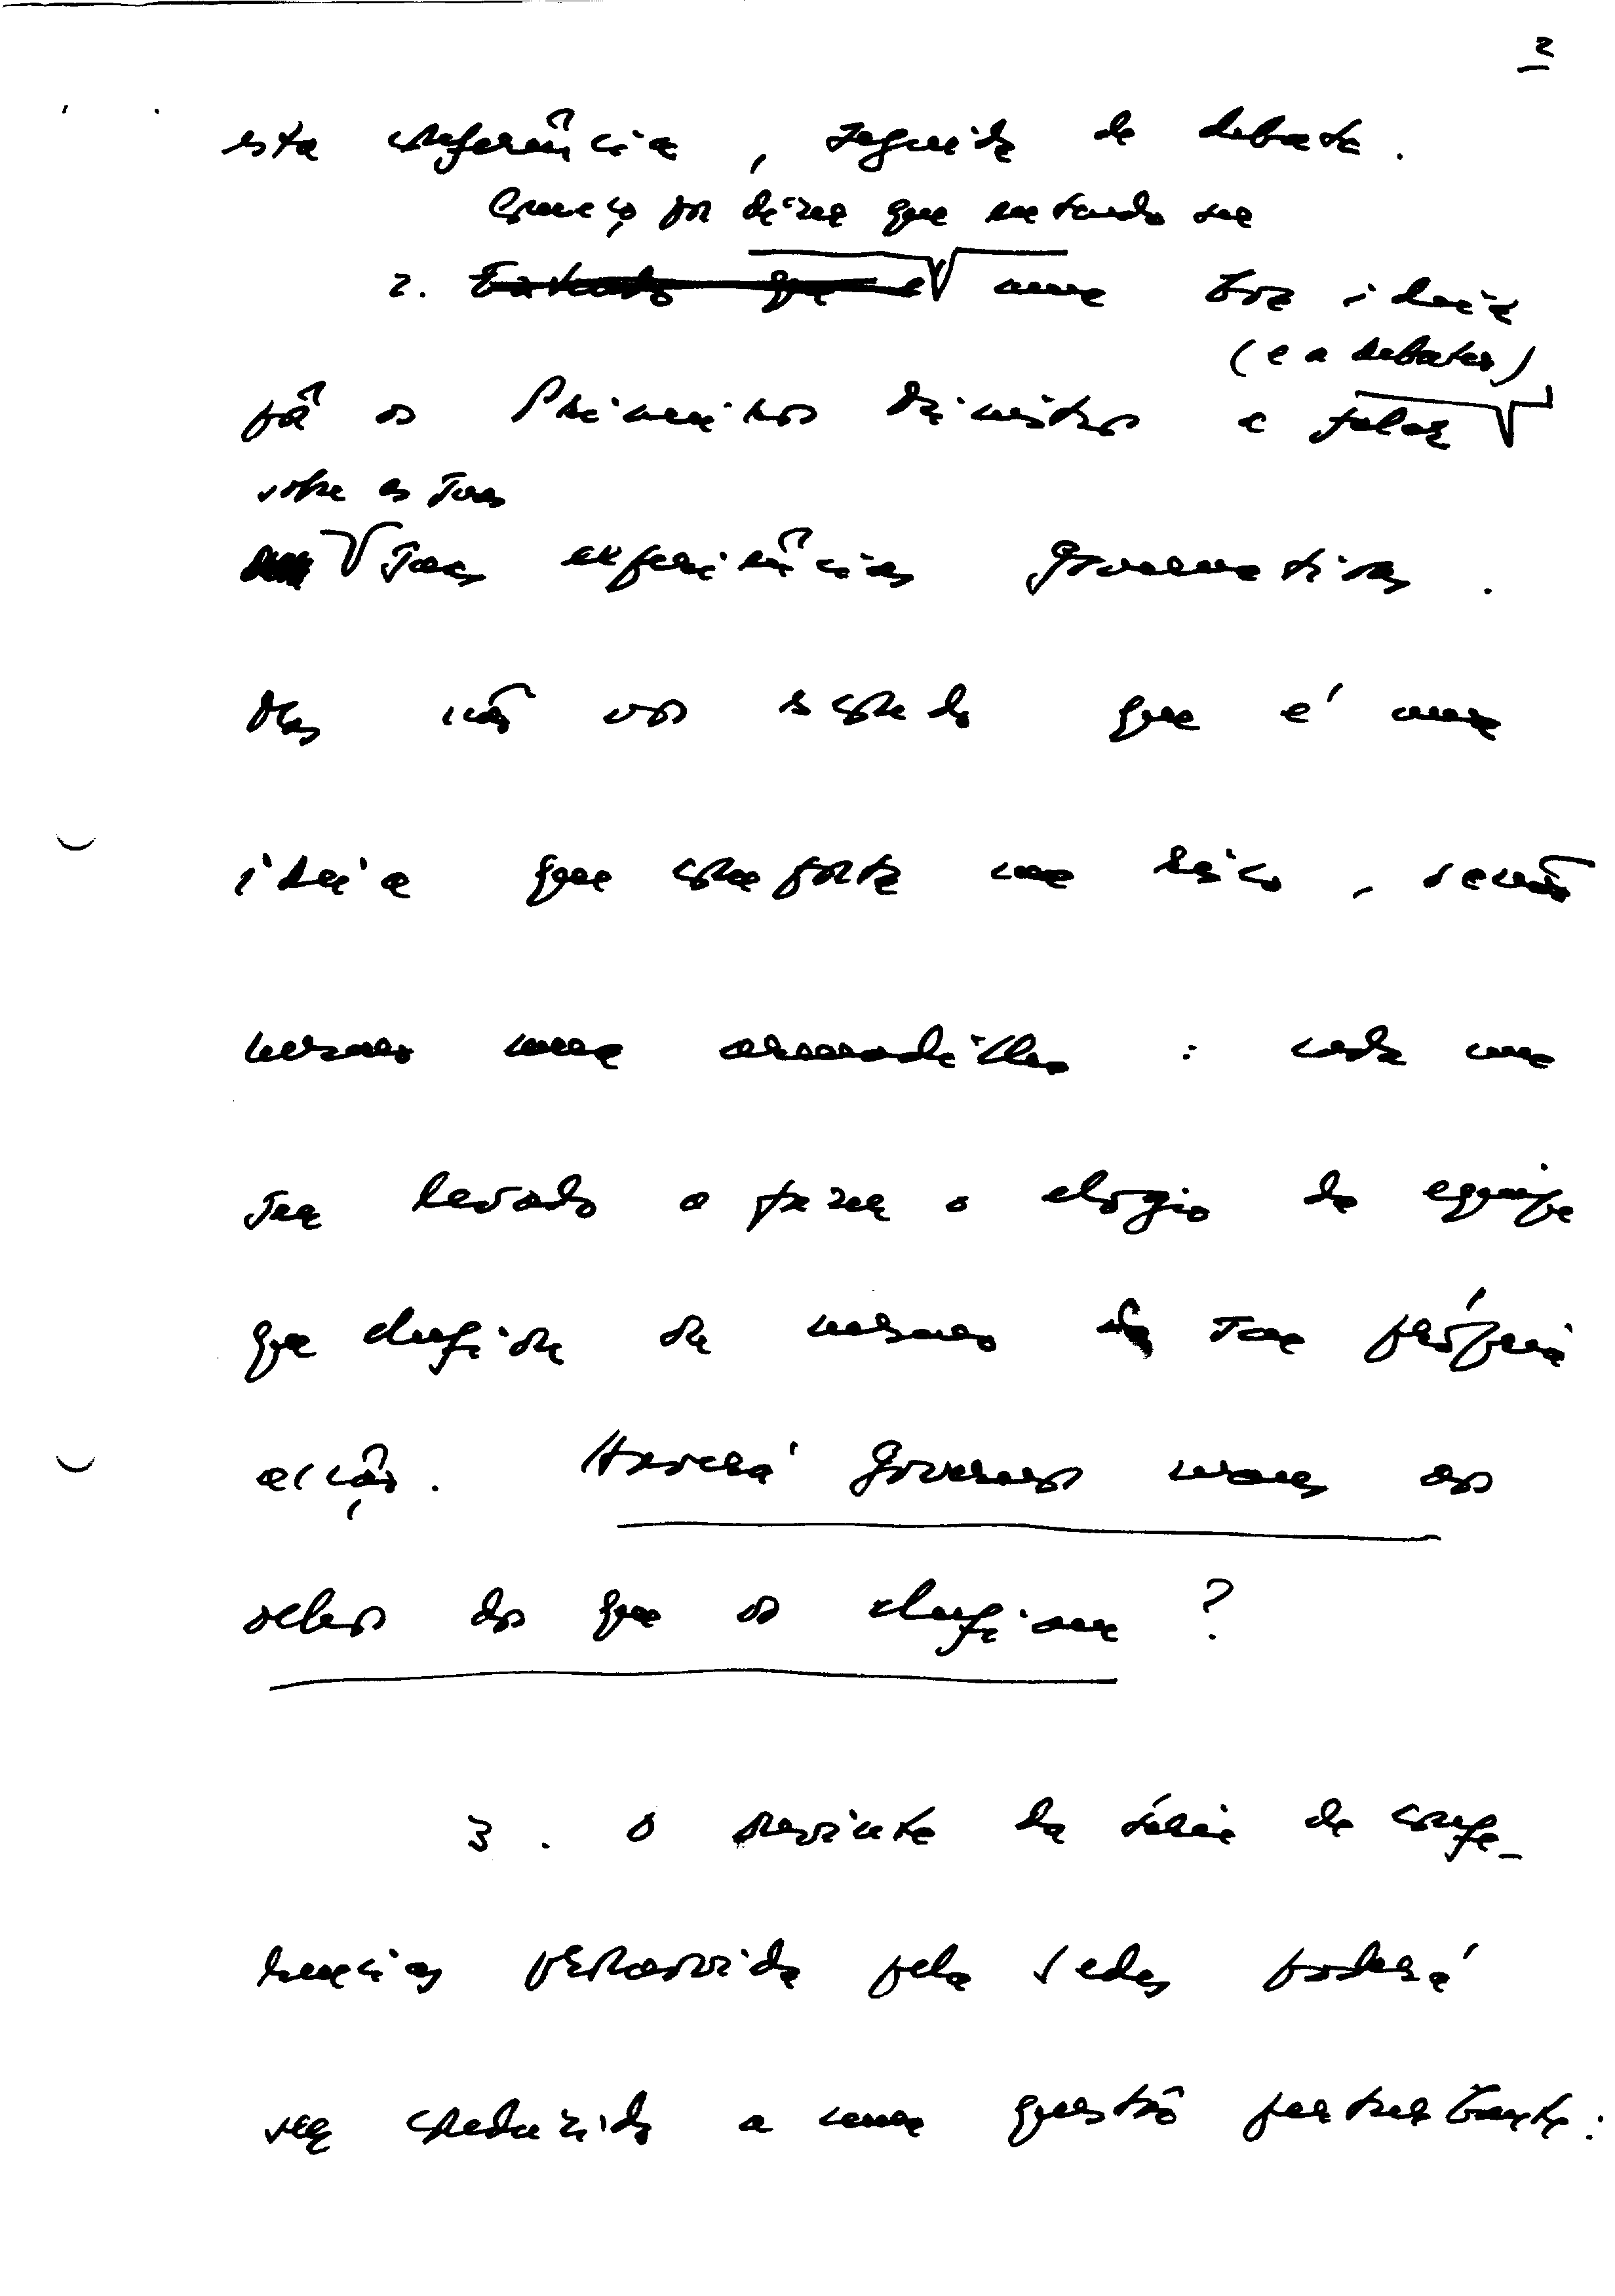 2
esta conferência, seguida de debate.
Começo por dizer que entendo ser
2. uma boa ideia
(e a debater)
pôr os Primeiros Ministros a falar
sobre as suas
suas experiências governativas.
Mas não vos escondo que é uma
ideia que comporta um risco, senão
mesmo uma armadilha: cada um
ser levado a fazer o elogio da equipa
que chefiou ou mesmo da sua própria
acção. Haverá governos maus aos
olhos dos que os chefiaram?
3. O ouvinte da série de confe-
rências promovida pela Sedes poderá
ser conduzido a uma questão perturbante: